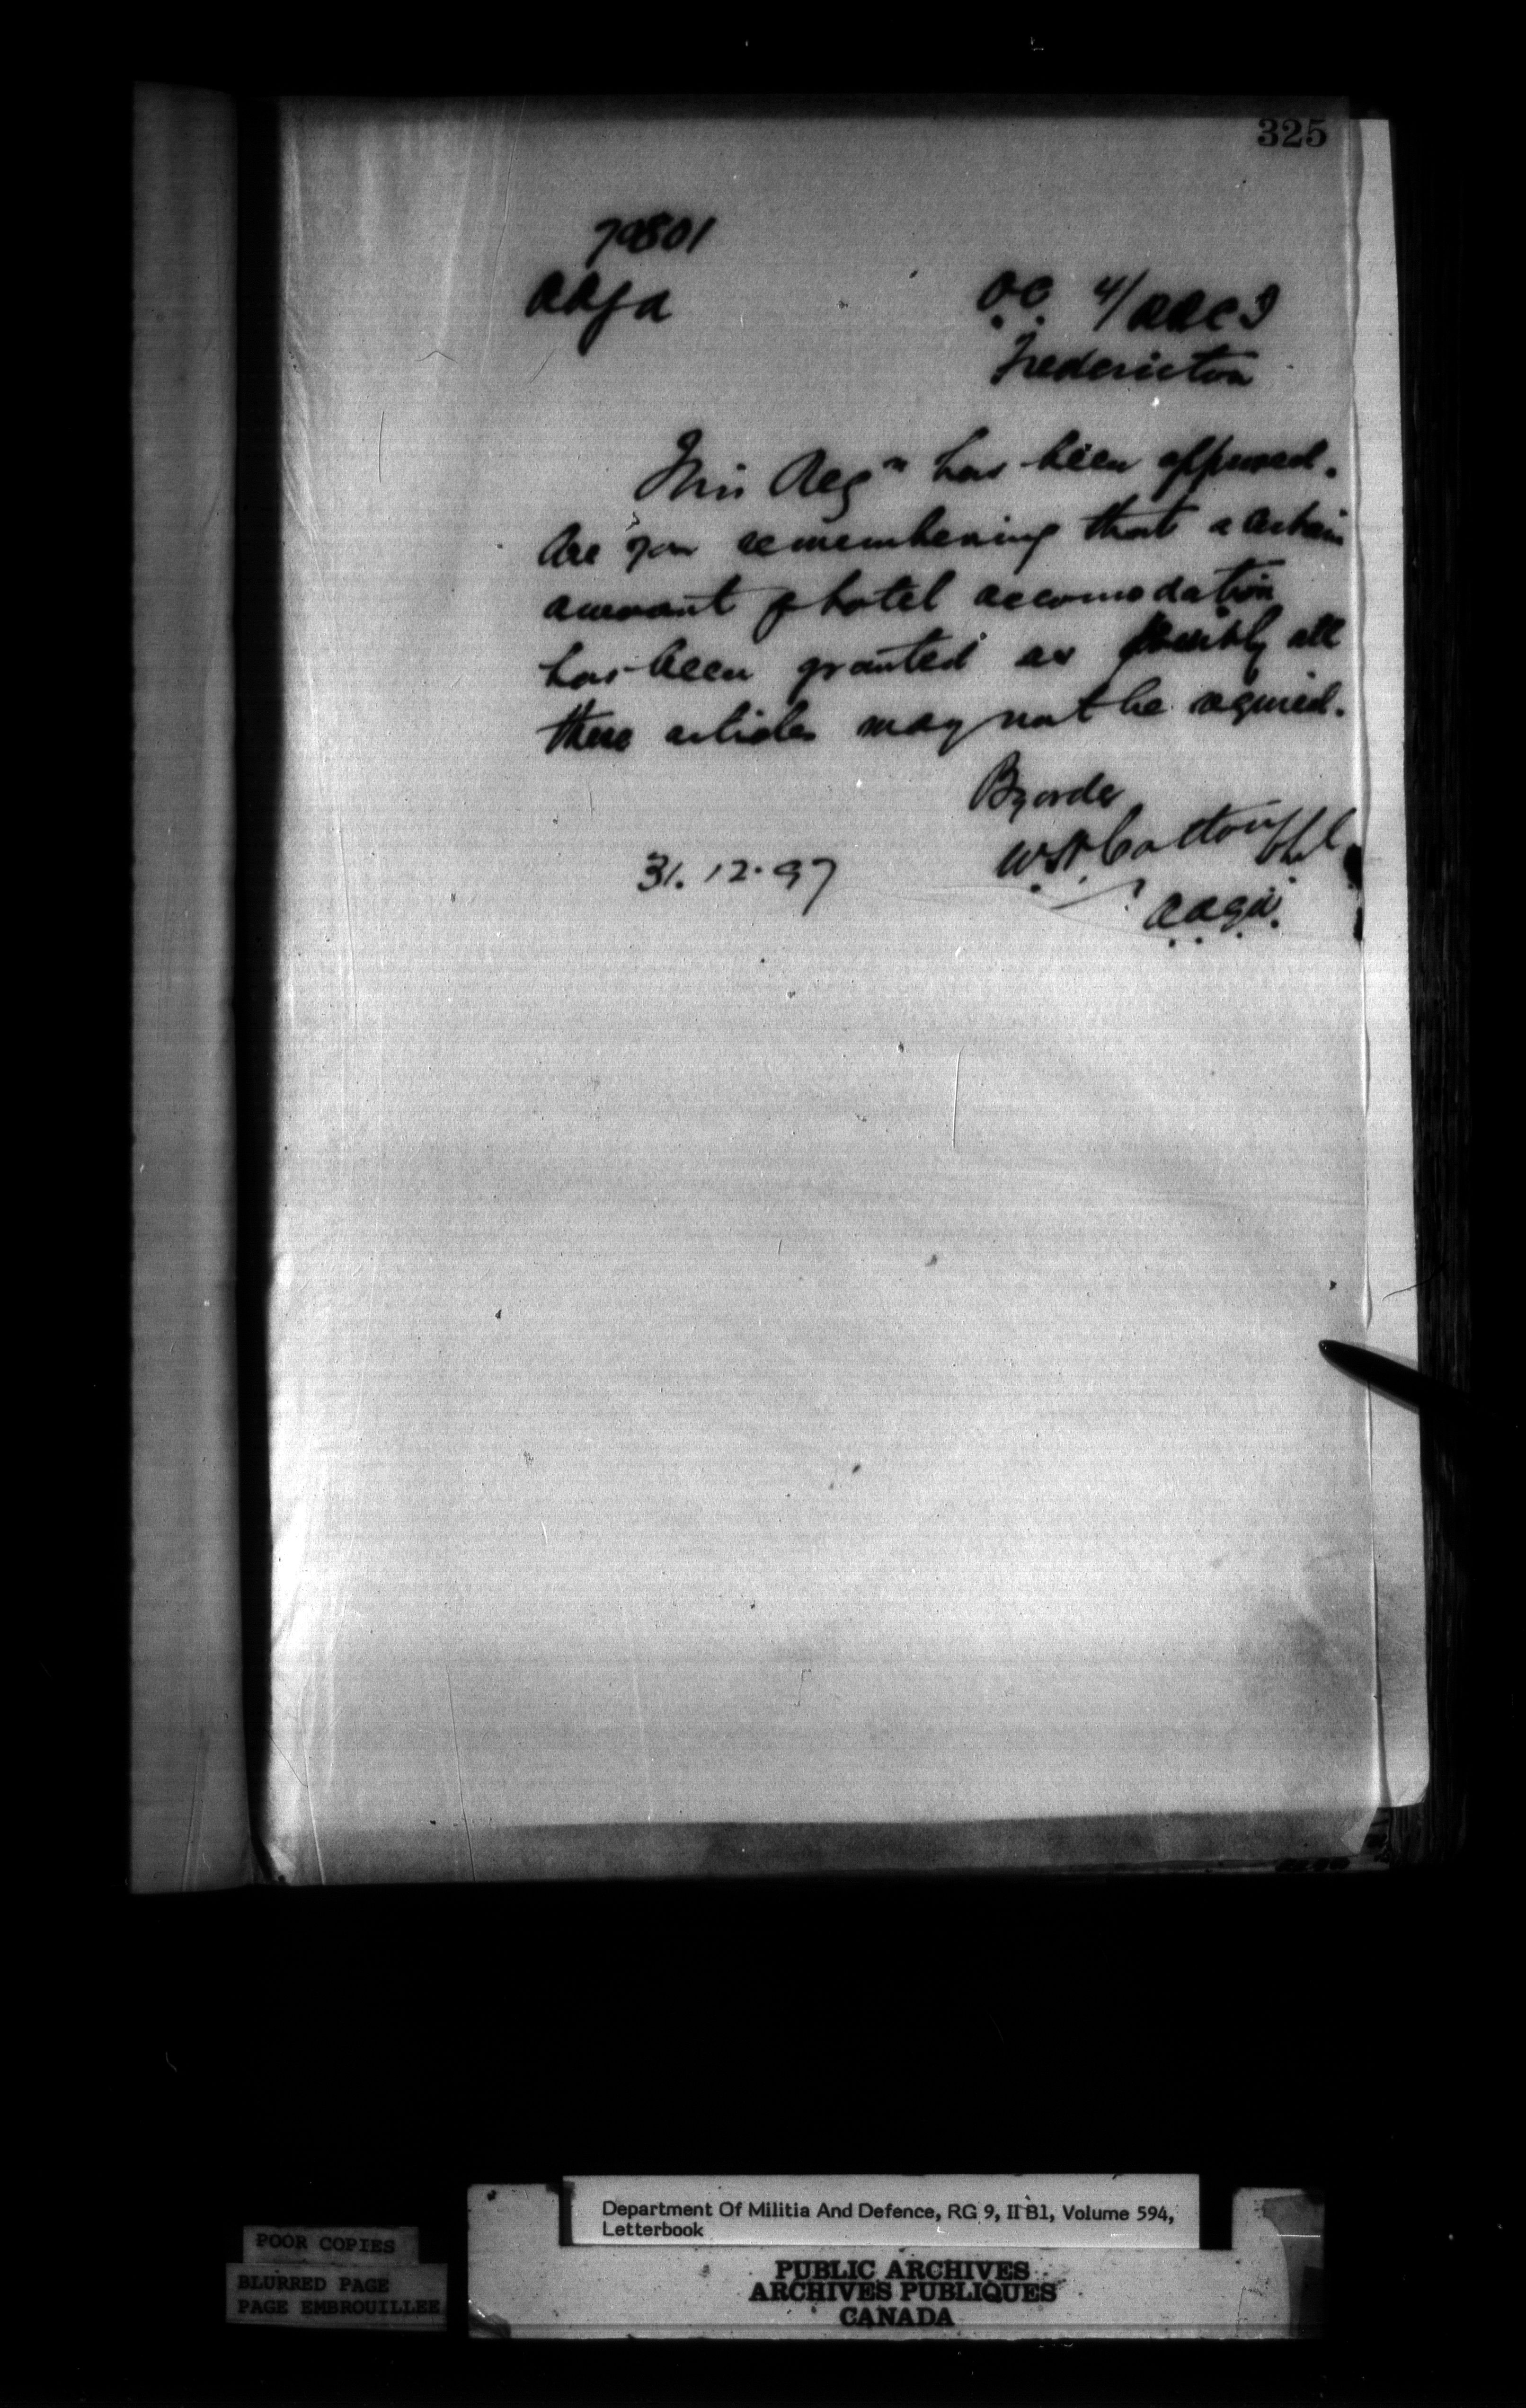 325
79801
AAGA
O.C. 4/RRCI
Fredericton
This Reqn has been approved.
Are you remembering that a certain
amount of hotel accomodation
has been granted as possibly all
these articles may not be required.
By order
W H Cotton
31.12.97
A.A.G.A.
Department Of Militia And Defence, RG 9, II B1, Volume 594,
Letterbook
POOR COPIES
BLURRED PAGE
PAGE EMBROUILLEE
PUBLIC ARCHIVES
ARCHIVES PUBLIQUES
CANADA